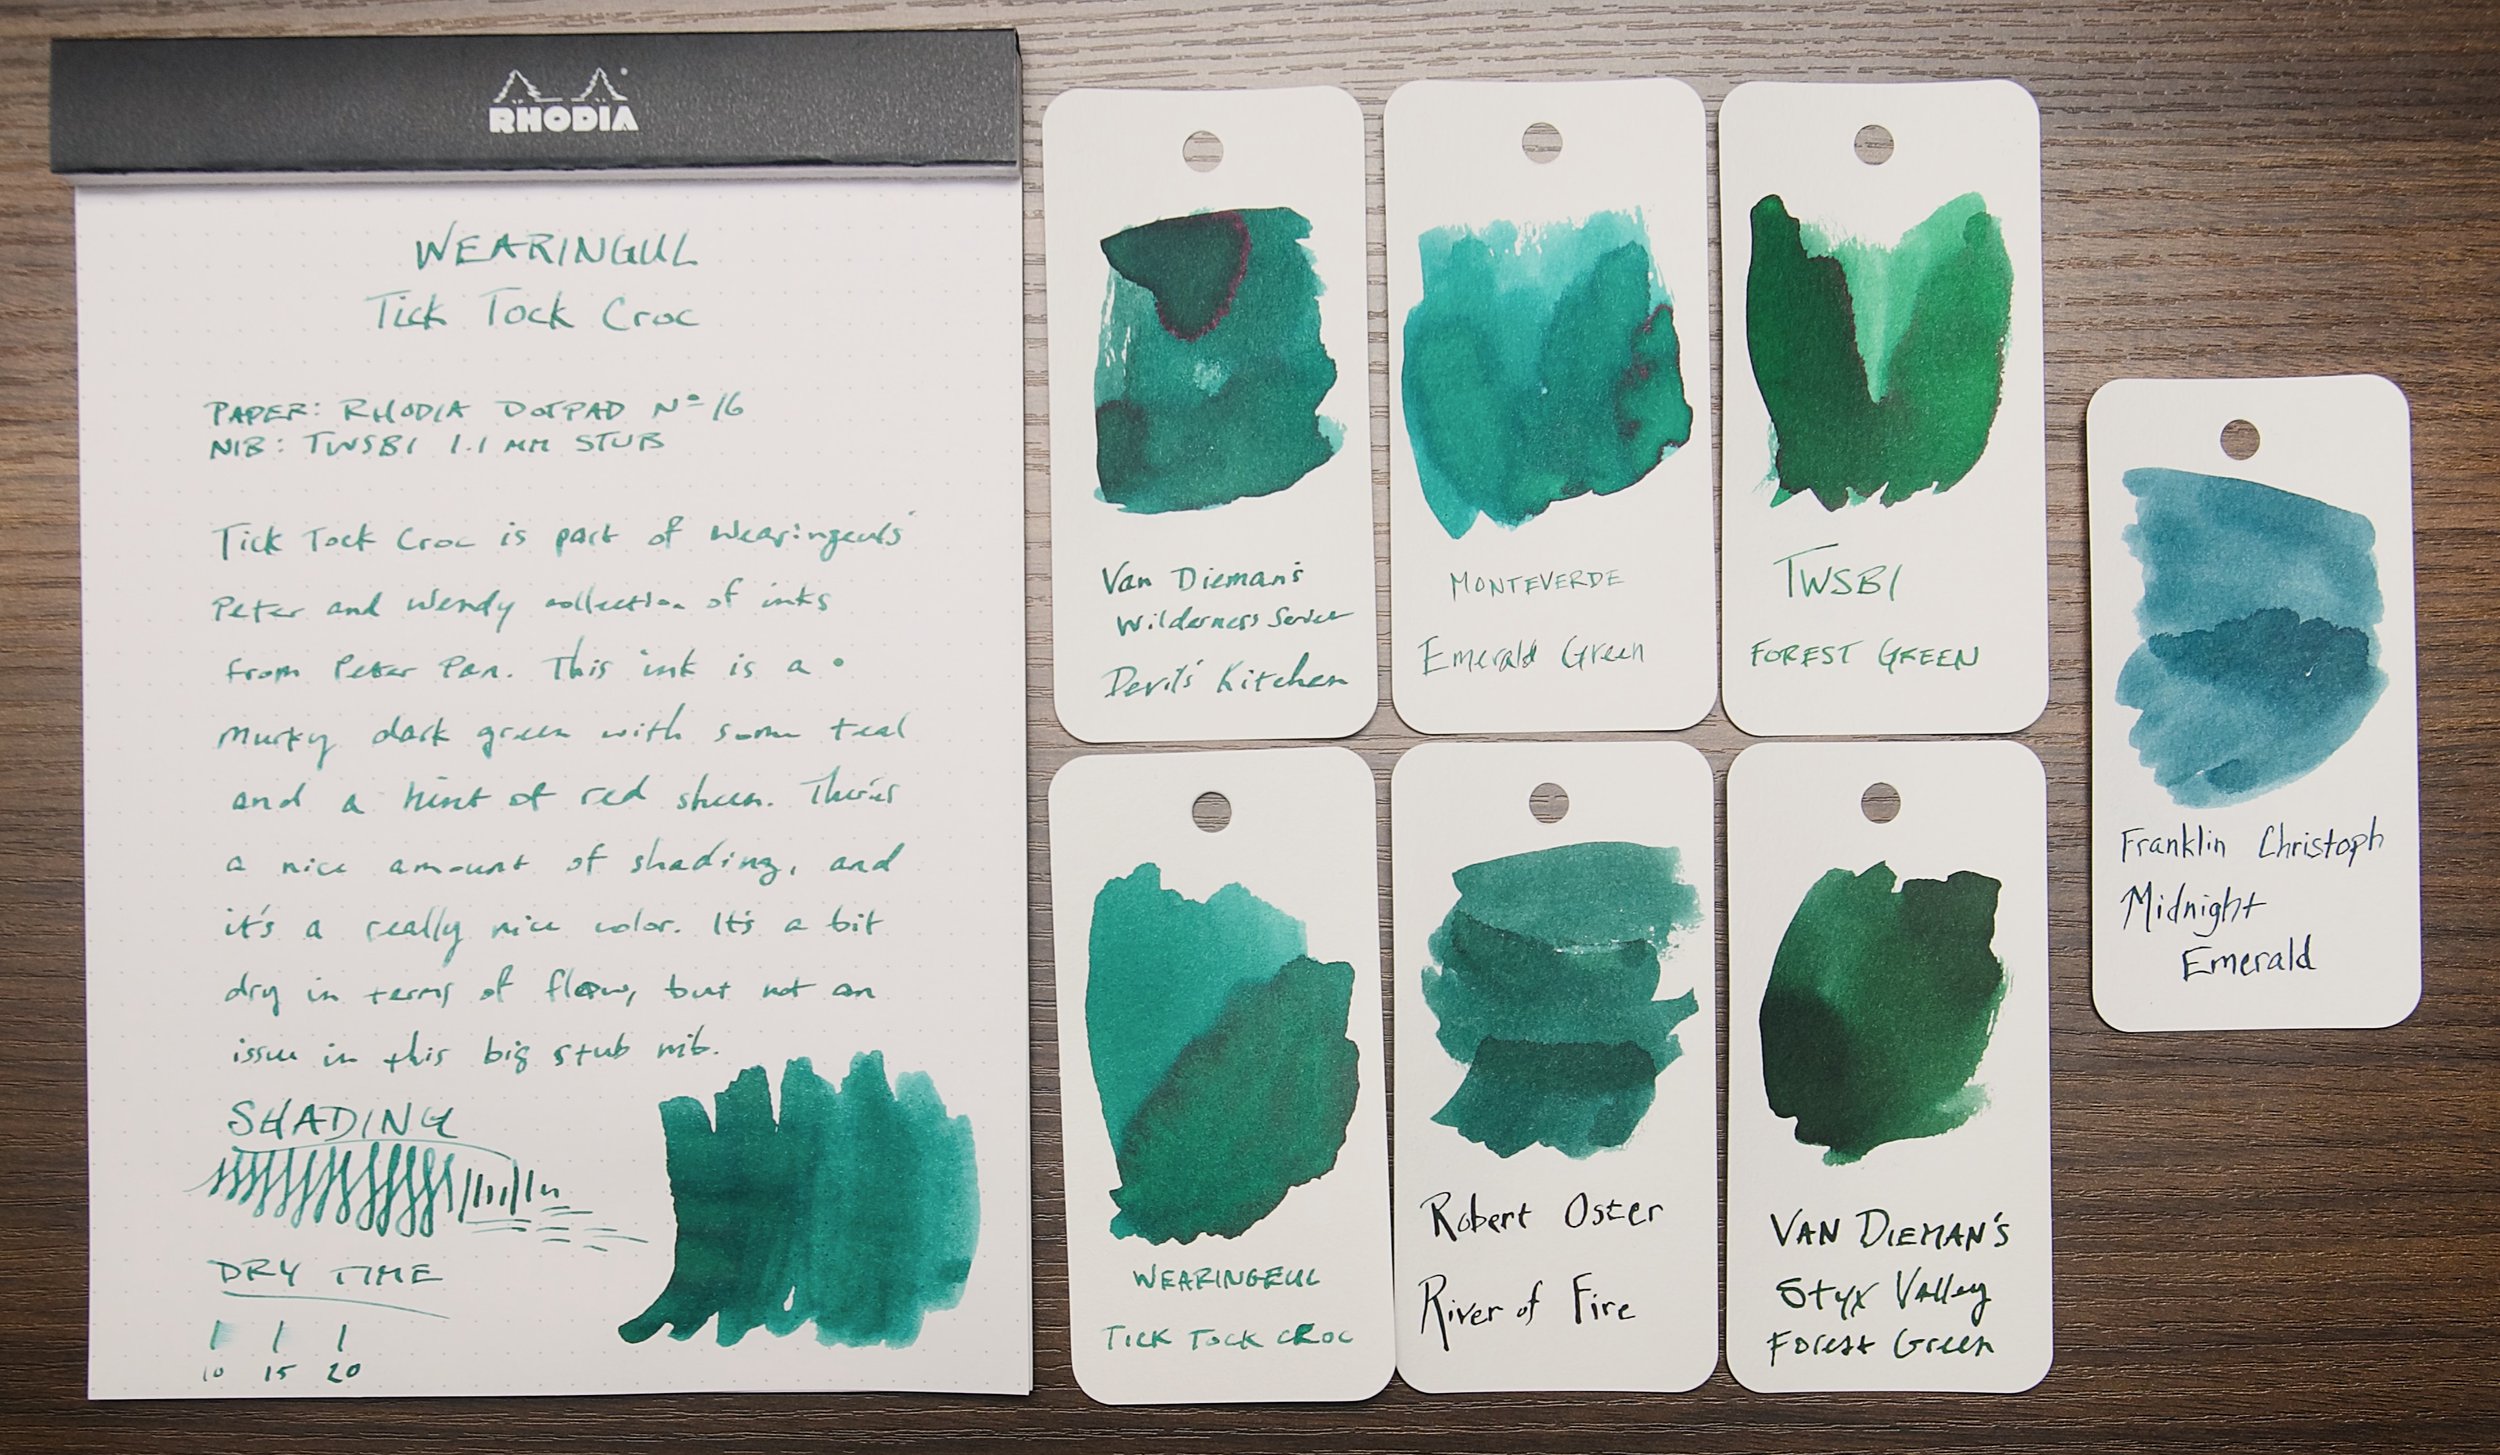 RHODIA
WEARINGUL
Tick Tock Croc
PAPER: RHODIA DOTPAD Nº 16
NIB: TWSBI 1.1 MM STUB
Tick Tock Croc is part of Wearingeuls'
Peter and Wendy collection of inks
from Peter Pan. This ink is a
murky dark green with some teal
and a hint of red sheen. There's
a nice amount of shading, and
it's a really nice color. It's a bit
dry in terms of flow, but not an
issue in this big stub nib.
SHADING
DRY TIME
10 15 20
Van Dieman's
Wilderness Series
Devil's Kitchen
MONTEVERDE
Emerald Green
TWSBI
FOREST GREEN
WEARINGEUL
TICK TOCK CROC
Robert Oster
River of Fire
VAN DIEMAN'S
Styx Valley
Forest Green
Franklin Christoph
Midnight
Emerald